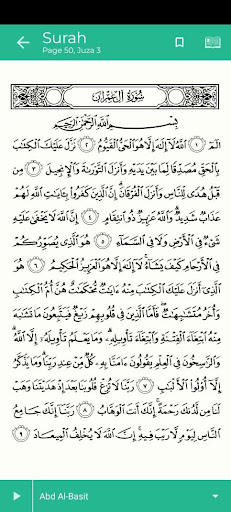 Surah
Page 50, Juza 3
سُورَةُ آلِ عِمْرَانَ
بِسْمِ ٱللَّهِ ٱلرَّحْمَٰنِ ٱلرَّحِيمِ
الٓمٓ ١ ٱللَّهُ لَآ إِلَٰهَ إِلَّا هُوَ ٱلْحَىُّ ٱلْقَيُّومُ ٢ نَزَّلَ عَلَيْكَ ٱلْكِتَٰبَ
بِٱلْحَقِّ مُصَدِّقًا لِّمَا بَيْنَ يَدَيْهِ وَأَنزَلَ ٱلتَّوْرَىٰةَ وَٱلْإِنجِيلَ ٣ مِن
قَبْلُ هُدًى لِّلنَّاسِ وَأَنزَلَ ٱلْفُرْقَانَ إِنَّ ٱلَّذِينَ كَفَرُوا۟ بِـَٔايَٰتِ ٱللَّهِ لَهُمْ
عَذَابٌ شَدِيدٌ وَٱللَّهُ عَزِيزٌ ذُو ٱنتِقَامٍ ٤ إِنَّ ٱللَّهَ لَا يَخْفَىٰ عَلَيْهِ
شَىْءٌ فِى ٱلْأَرْضِ وَلَا فِى ٱلسَّمَآءِ ٥ هُوَ ٱلَّذِى يُصَوِّرُكُمْ
فِى ٱلْأَرْحَامِ كَيْفَ يَشَآءُ لَآ إِلَٰهَ إِلَّا هُوَ ٱلْعَزِيزُ ٱلْحَكِيمُ ٦
هُوَ ٱلَّذِىٓ أَنزَلَ عَلَيْكَ ٱلْكِتَٰبَ مِنْهُ ءَايَٰتٌ مُّحْكَمَٰتٌ هُنَّ أُمُّ ٱلْكِتَٰبِ
وَأُخَرُ مُتَشَٰبِهَٰتٌ فَأَمَّا ٱلَّذِينَ فِى قُلُوبِهِمْ زَيْغٌ فَيَتَّبِعُونَ مَا تَشَٰبَهَ
مِنْهُ ٱبْتِغَآءَ ٱلْفِتْنَةِ وَٱبْتِغَآءَ تَأْوِيلِهِۦ وَمَا يَعْلَمُ تَأْوِيلَهُۥٓ إِلَّا ٱللَّهُ
وَٱلرَّٰسِخُونَ فِى ٱلْعِلْمِ يَقُولُونَ ءَامَنَّا بِهِۦ كُلٌّ مِّنْ عِندِ رَبِّنَا وَمَا يَذَّكَّرُ
إِلَّآ أُو۟لُوا۟ ٱلْأَلْبَٰبِ ٧ رَبَّنَا لَا تُزِغْ قُلُوبَنَا بَعْدَ إِذْ هَدَيْتَنَا وَهَبْ
لَنَا مِن لَّدُنكَ رَحْمَةً إِنَّكَ أَنتَ ٱلْوَهَّابُ ٨ رَبَّنَآ إِنَّكَ جَامِعُ
ٱلنَّاسِ لِيَوْمٍ لَّا رَيْبَ فِيهِ إِنَّ ٱللَّهَ لَا يُخْلِفُ ٱلْمِيعَادَ ٩
Abd Al-Basit